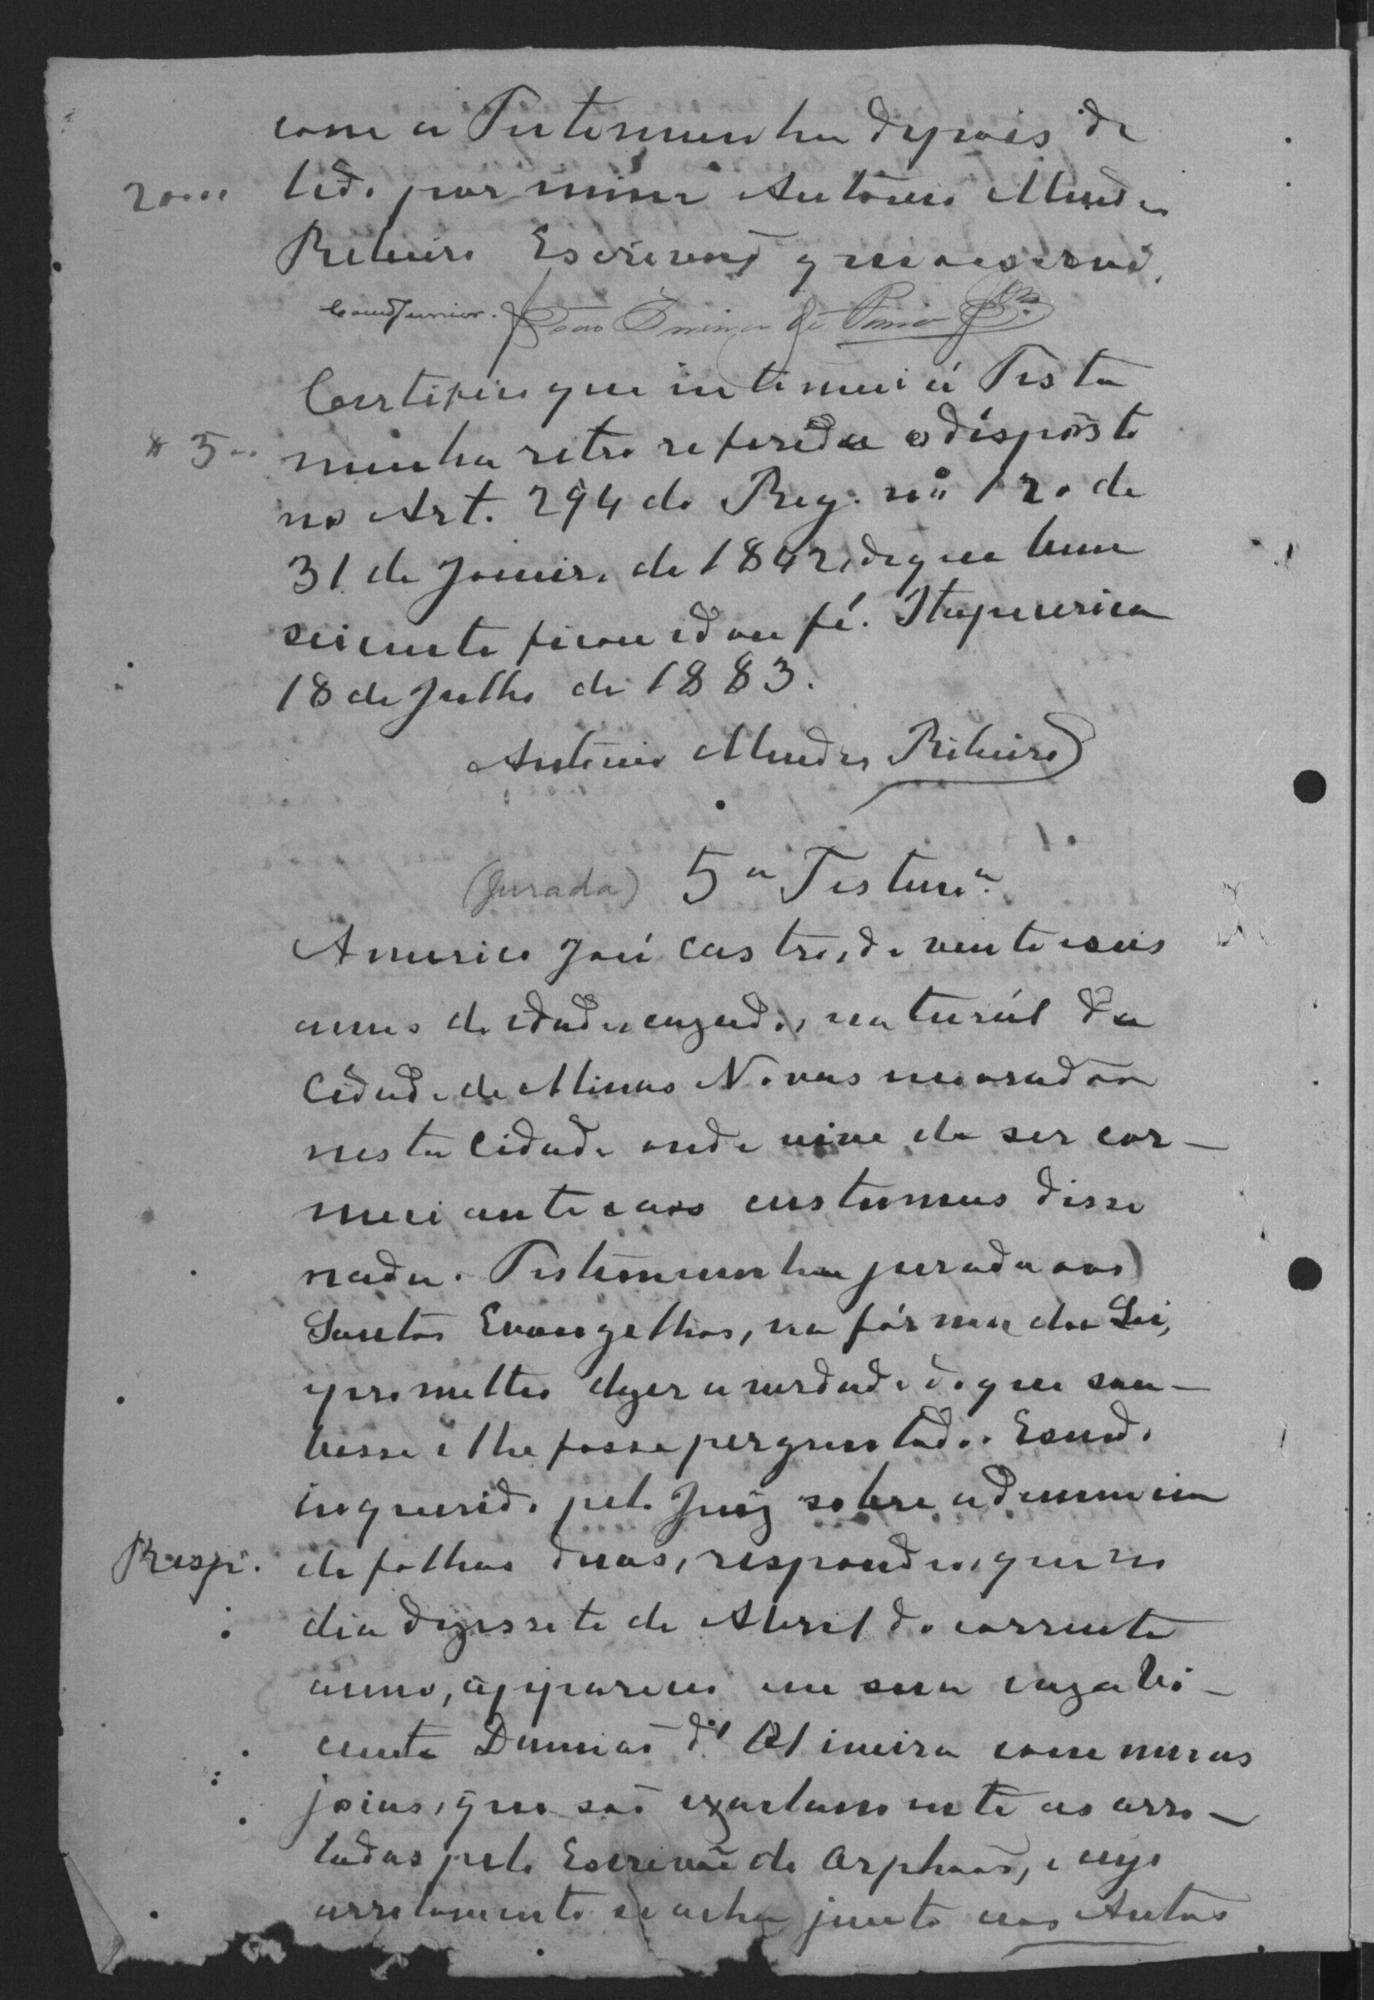 com a Testemunha depois de
2000 lido por mim Antonio Mendes
Ribeiro Escrivaõ que o escrevi.
Certifico que intimei á Teste
$500 munha retro referida o disposto
no Art. 294 do Reg. nº 120 de
31 de Janeiro de 1842, de que bem
sciente ficou e dou fé. Itapecerica
18 de Julho de 1883.
Antonio Mendes Ribeiro
(Jurada) 5ª Testemª
Americo José Castro, de vinte e seis
annos de idade, cazado, naturál da
Cidade de Minas Novas morador
nesta Cidade onde vive de ser com-
merciante e aos custumes disse
nada. Testemunha jurada aos
Santos Evangelhos, na fórma da Lei,
e prometteo dizer a verdade do que sou-
besse e lhe fosse perguntado. E sendo
inquerido pelo Juiz sobre a denuncia
Resp. de folhas duas, respondeo, que no
dia dezessete de Abril do corrente
anno, appareceo em sua caza Vi-
cente Damiaõ d'Oliveira com umas
joias, que saõ exactamente as arro-
ladas pelo Escrivaõ de Orphaõs, e cujo
arrolamento se acha junto aos Autos